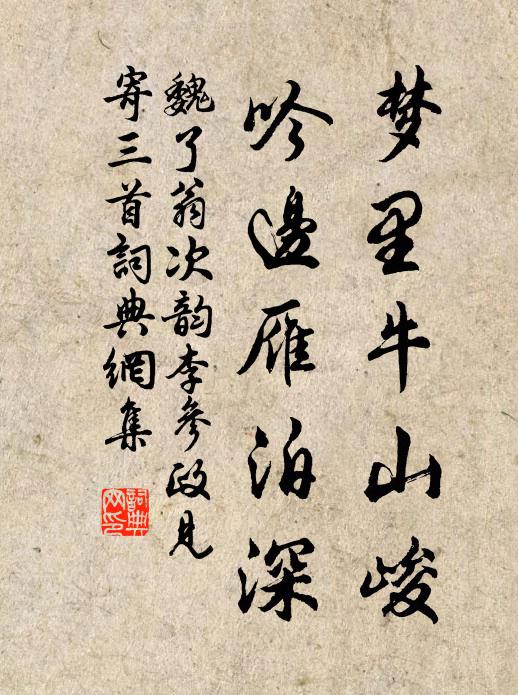 梦里牛山峻
吟邊雁泊深
魏了翁次韵李參政見
寄三首詞典網集
詞典
网印